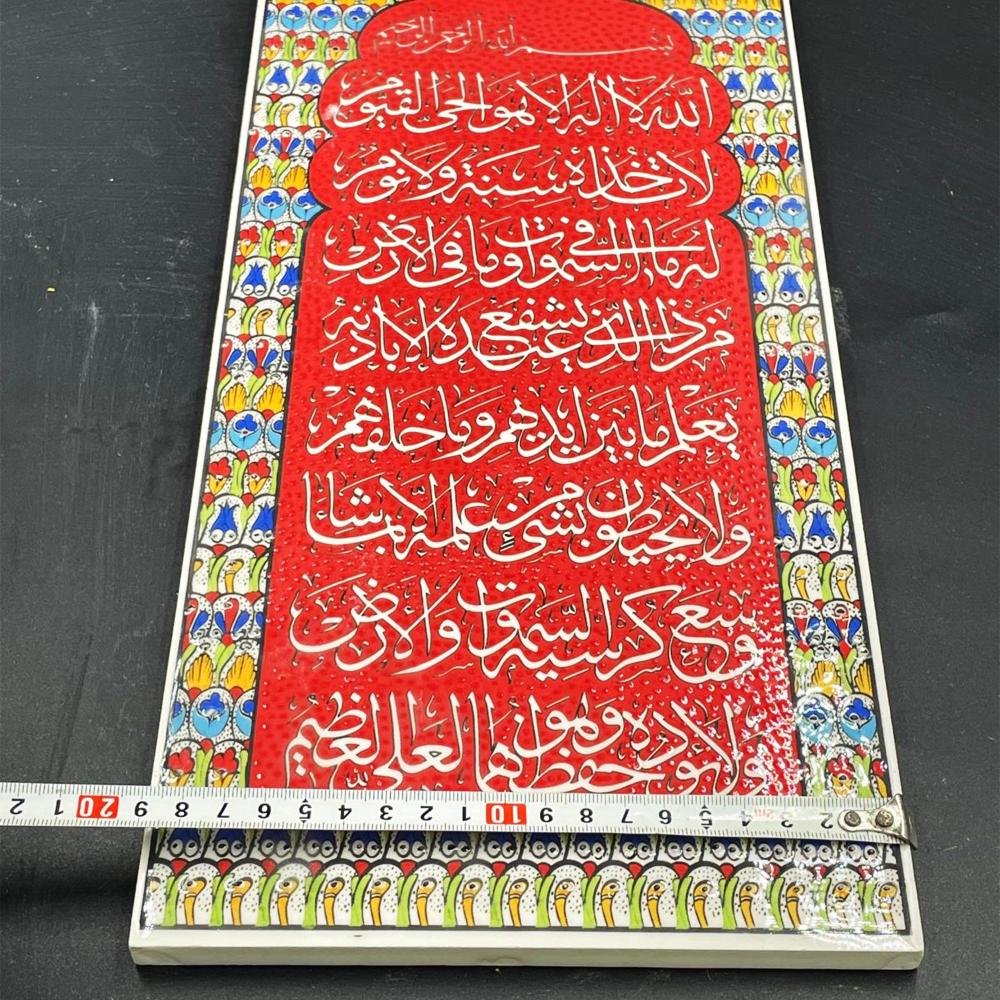 بسم الله الرحمن الرحيم
الله لا اله الا هو الحي القيوم
لا تأخذه سنة ولا نوم
له ما في السموات وما في الارض
من ذا الذي يشفع عنده الا باذنه
يعلم ما بين ايديهم وما خلفهم
ولا يحيطون بشئ من علمه الا بما شاء
وسع كرسيه السموات والارض
ولا يؤده حفظهما وهو العلي العظيم
2 1 20 9 8 7 6 5 4 3 2 1 10 9 8 7 6 5 4 3 2